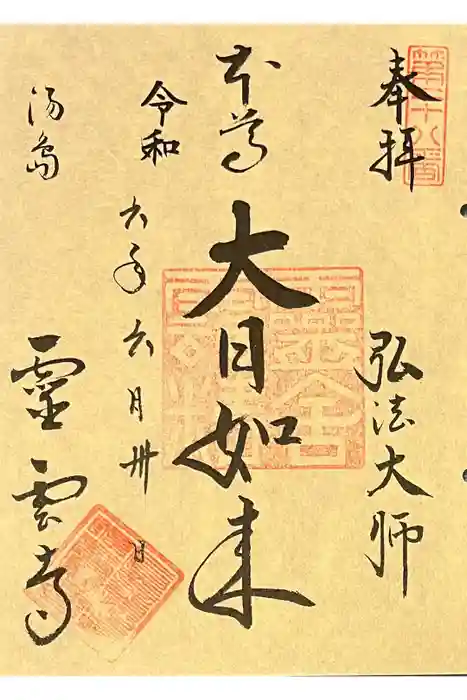 奉拝
弘法大師
本尊
大日如来
令和六年六月卅日
湯島
靈雲寺
第十八番